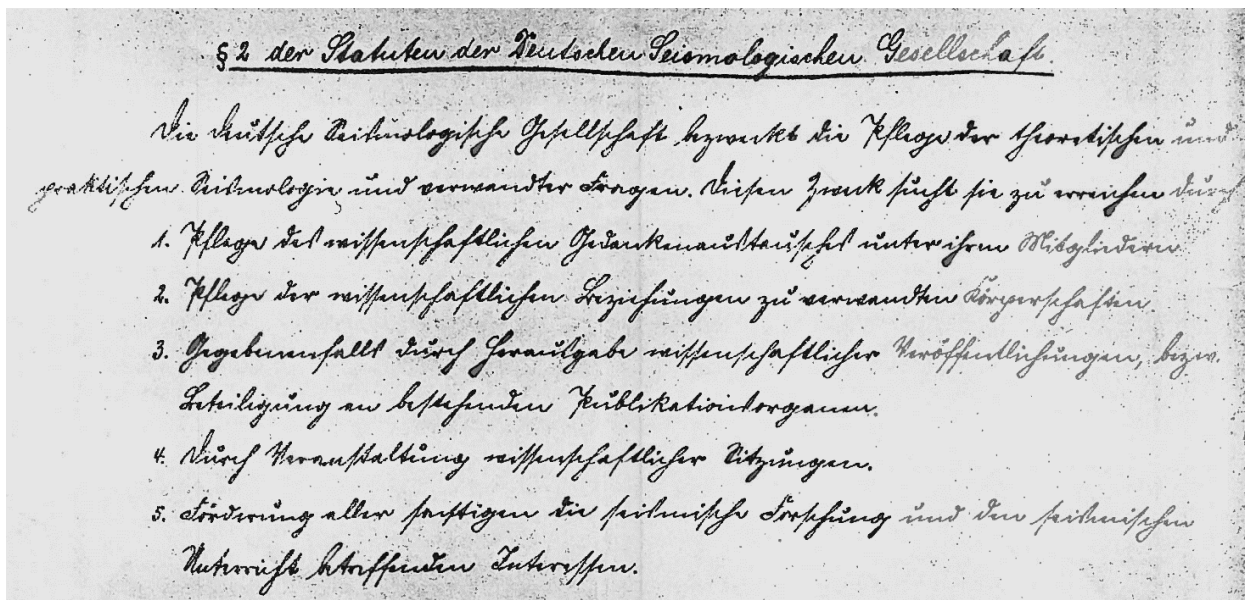 § 2 der Statuten der Deutschen Seismologischen Gesellschaft.
Die Deutsche Seismologische Gesellschaft bezweckt die Pflege der theoretischen und
praktischen Seismologie und verwandter Fragen. Diesen Zweck sucht sie zu erreichen durch
1. Pflege des wissenschaftlichen Gedankenaustausches unter ihren Mitgliedern
2. Pflege der wissenschaftlichen Beziehungen zu verwandten Körperschaften
3. Gegebenenfalls durch Herausgabe wissenschaftlicher Veröffentlichungen, bezw.
Beteiligung an bestehenden Publikationsorganen.
4. Durch Veranstaltung wissenschaftlicher Sitzungen.
5. Förderung aller sonstigen die seismische Forschung und den seismischen
Unterricht betreffenden Interessen.